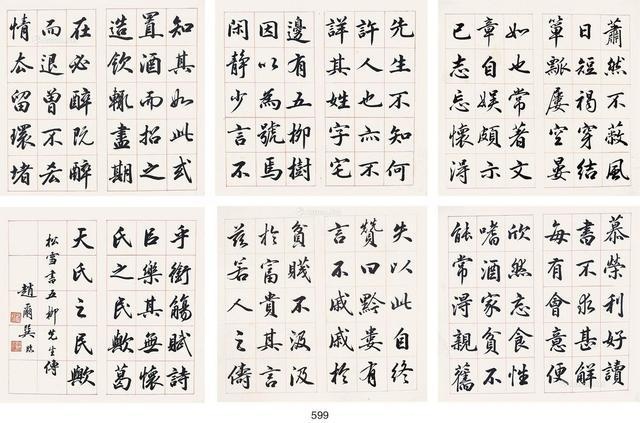 先生不知何
許人也亦不
詳其姓字宅
邊有五柳樹
因以為號焉
閑靜少言不
慕榮利好讀
書不求甚解
每有會意便
欣然忘食性
嗜酒家貧不
能常得親舊
知其如此或
置酒而招之
造飲輒盡期
在必醉既醉
而退曾不吝
情去留環堵
蕭然不蔽風
日短褐穿結
簞瓢屢空晏
如也常著文
章自娛頗示
己志忘懷得
失以此自終
贊曰黔婁有
言不戚戚於
貧賤不汲汲
於富貴其言
茲若人之儔
乎銜觴賦詩
㠯樂其無懷
氏之民歟葛
天氏之民歟
松雪書五柳先生傳
趙爾巽臨
599